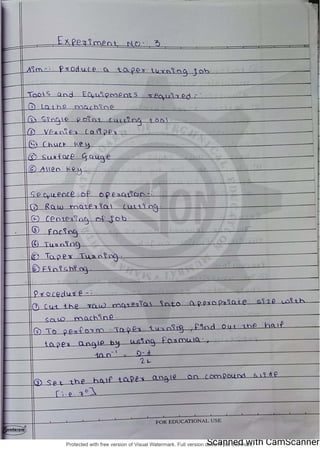 Experiment No:- 3
Aim:- Produce a taper turning Job
Tools and Equipements required:-
① Lathe machine
② Single point cutting tool
③ Vernier Caliper
④ Chuck Key
⑤ Surface Gauge
⑥ Allen Key
Sequence of operation:-
① Raw material cutting
② Centering of Job
③ Facing
④ Turning
⑤ Taper Turning
⑥ Finishing
Procedure:-
① Cut the raw material into appropriate size with
saw machine
② To perform taper turning, find out the half
taper angle by using Formula:-
tan⁻¹ D-d
2L
③ Set the half taper angle on compound slide
FOR EDUCATIONAL USE
Protected with free version of Visual Watermark. Full version doesn't put this mark.
Scanned with CamScanner